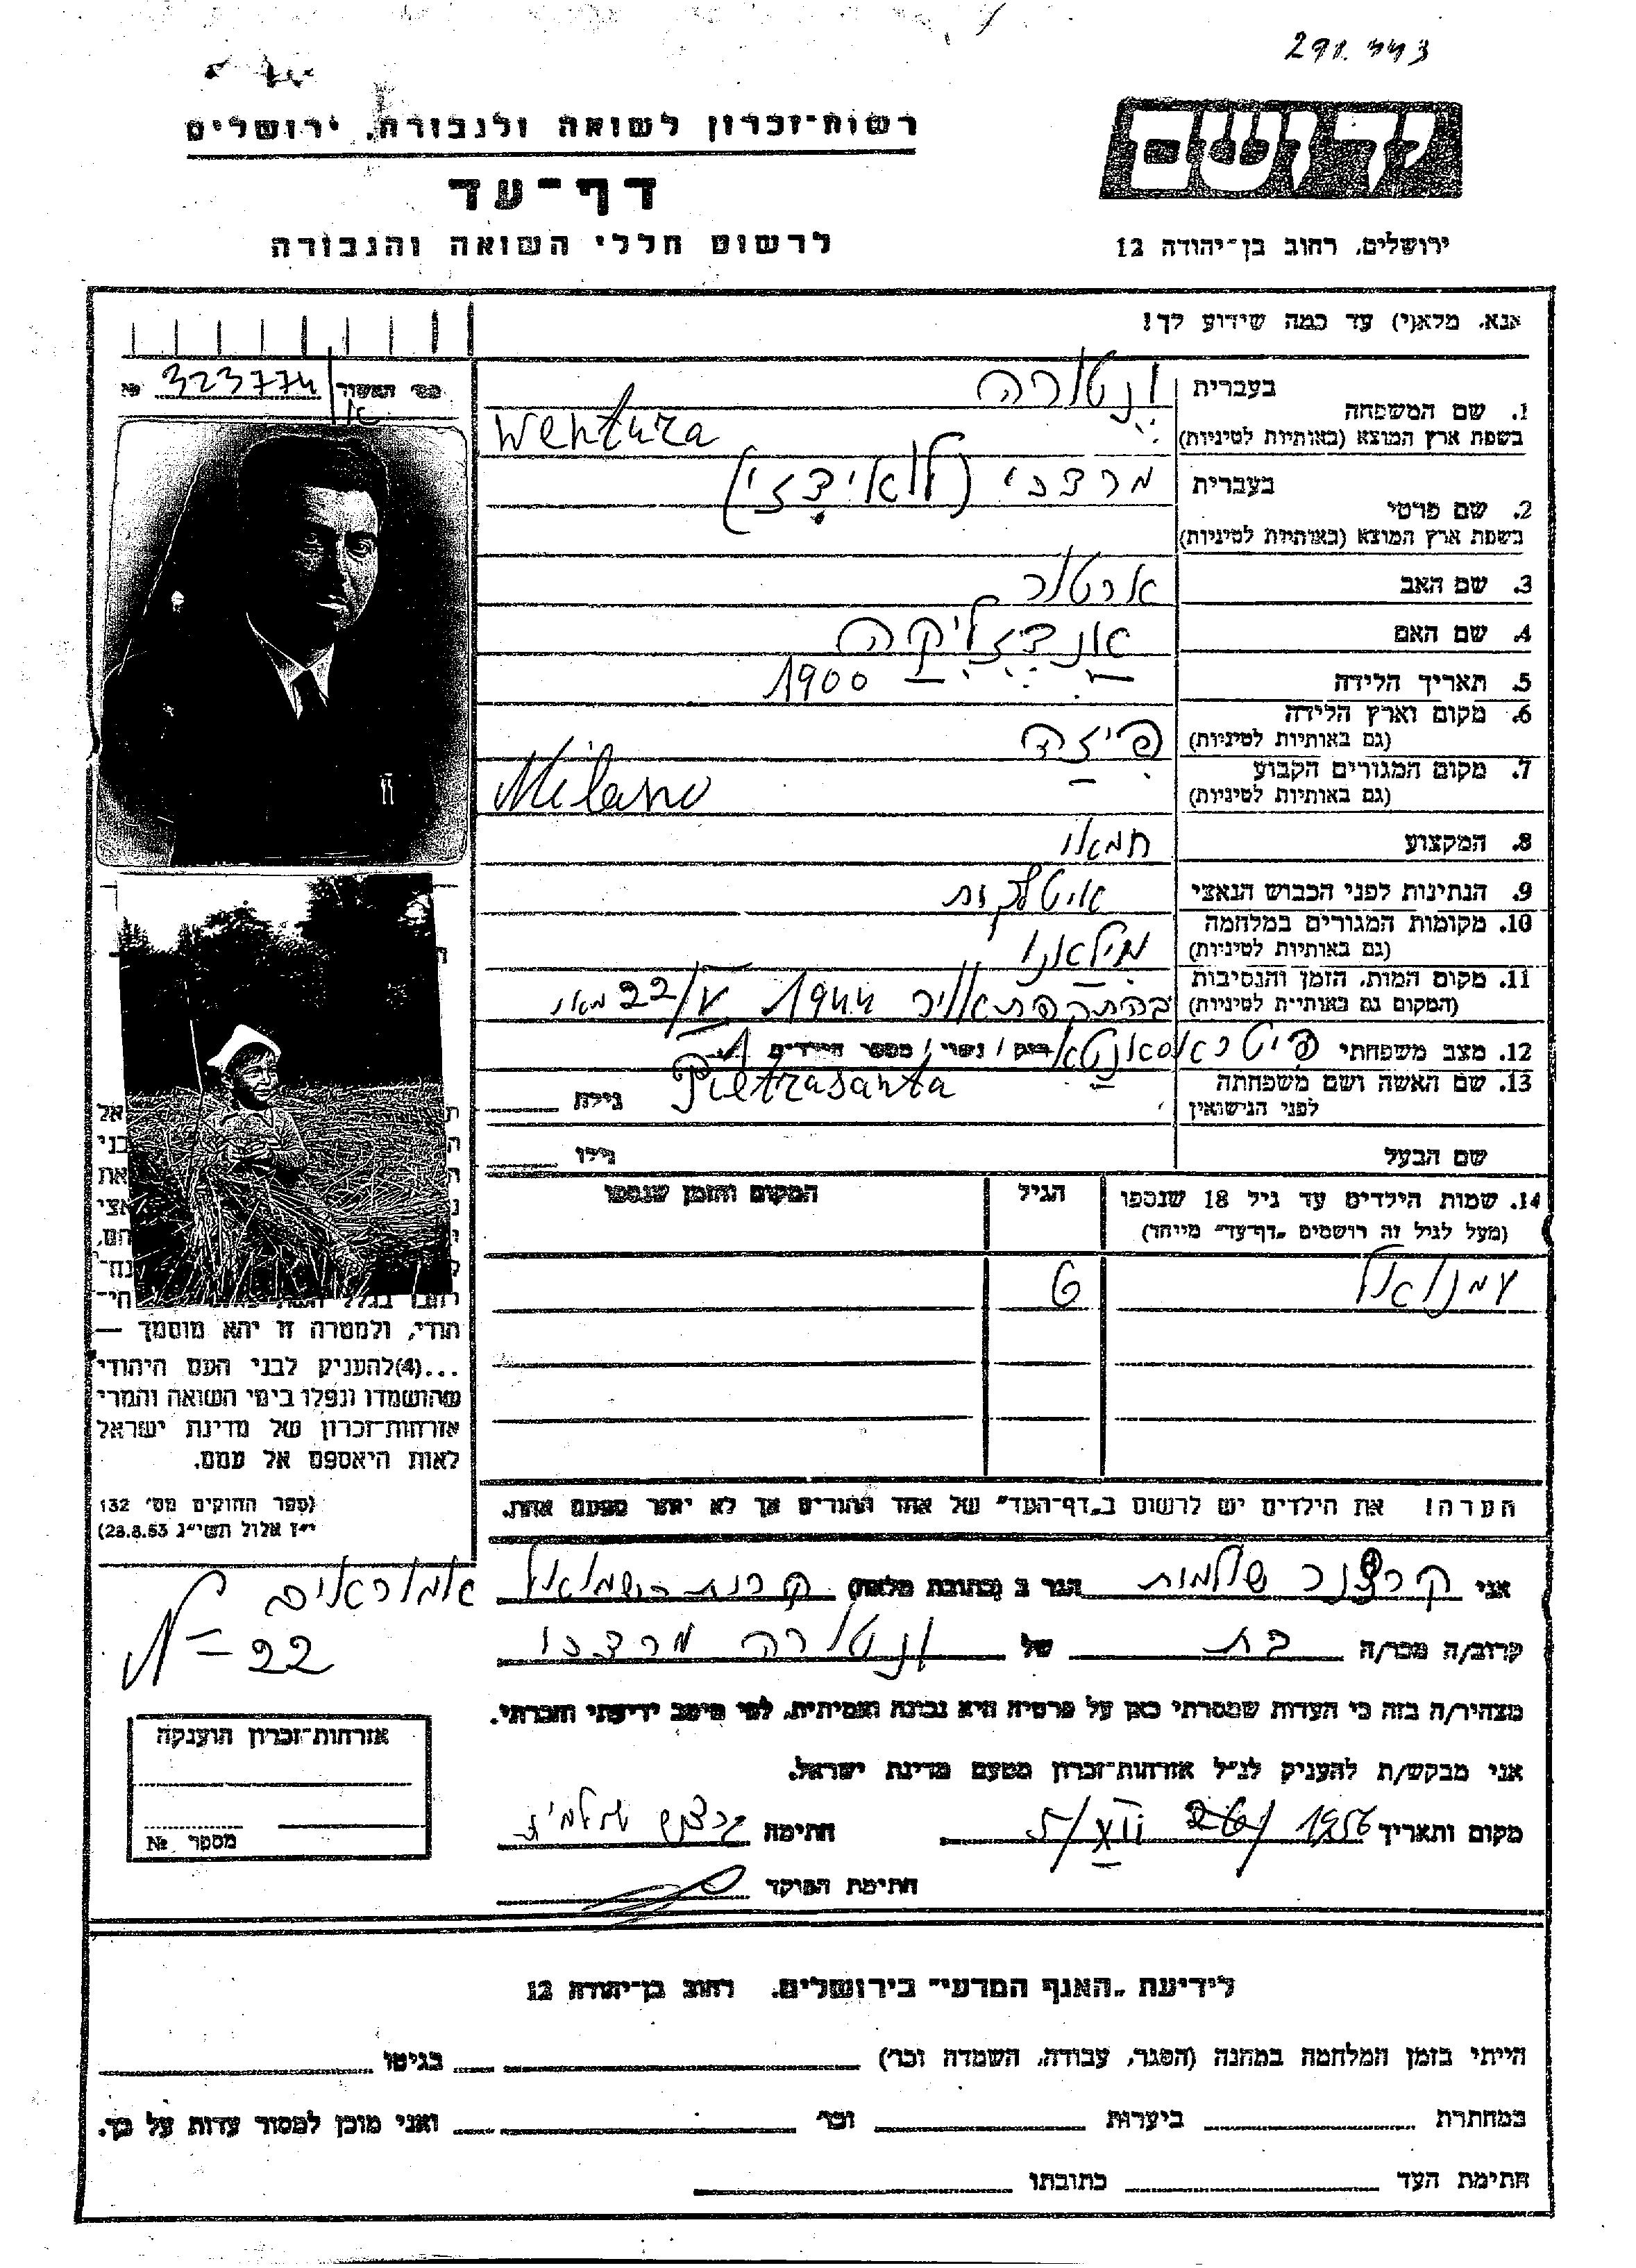 291.443
רשות־זכרון לשואה ולגבורה, ירושלים
דף־עד
לרשום חללי השואה והגבורה
ירושלים, רחוב בן־יהודה 12
אנא, מלא(י) עד כמה שידוע לך!
№ 323774
1. שם המשפחה
בעברית
ונטורה
בשפת ארץ המוצא (באותיות לטיניות)
Wentura
2. שם פרטי
בעברית
מרדכי
בשפת ארץ המוצא (באותיות לטיניות)
3. שם האב
ארטור
4. שם האם
אנדז'ליקה
5. תאריך הלידה
1900
6. מקום וארץ הלידה
(גם באותיות לטיניות)
פיזה
7. מקום המגורים הקבוע
(גם באותיות לטיניות)
Milano
8. המקצוע
9. הנתינות לפני הכבוש הנאצי
איטלקית
10. מקומות המגורים במלחמה
(גם באותיות לטיניות)
מילאנו
11. מקום המות, הזמן והנסיבות
(המקום גם באותיות לטיניות)
בהתקפת אויר 1944 22/V
12. מצב משפחתי
פיטראסאנטא
רוק / נשוי / מספר הילדים 1
Pietrasanta
13. שם האשה ושם משפחתה
לפני הנישואין
גילה
שם הבעל
גילו
14. שמות הילדים עד גיל 18 שנספו
(מעל לגיל זה רושמים „דף־עד” מיוחד)
הגיל
המקום והזמן שנספו
עמנואל
6
הודי, ולמטרה זו יהא מוסמך —
...(4)להעניק לבני העם היהודי
שהושמדו ונפלו בימי השואה והמרי
אזרחות־זכרון של מדינת ישראל
לאות היאספם אל עמם.
(ספר החוקים מס׳ 132
י״ז אלול תשי״ג 28.8.53)
הערה! את הילדים יש לרשום ב„דף־העד” של אחד ההורים אך לא יותר מפעם אחת.
אני קרצנר שולמית הגר ב (כתובת מלאה) קרית שמואל
אמוראים
22 =
קרוב/ה מכר/ה בת של ונטורה מרדכי
מצהיר/ה בזה כי העדות שמסרתי כאן על פרטיה היא נכונה ואמיתית, לפי מיטב ידיעתי והכרתי.
אני מבקש/ת להעניק לנ״ל אזרחות־זכרון מטעם מדינת ישראל.
אזרחות־זכרון הוענקה
מספר №
מקום ותאריך 5/XII 1956 חתימה
חתימת הפוקד
לידיעת „האגף המדעי” בירושלים, רחוב בן־יהודה 12
הייתי בזמן המלחמה במחנה (הסגר, עבודה, השמדה וכו׳) בגיטו
במחתרת ביערות וכו׳ ואני מוכן למסור עדות על כך.
חתימת העד כתובתו